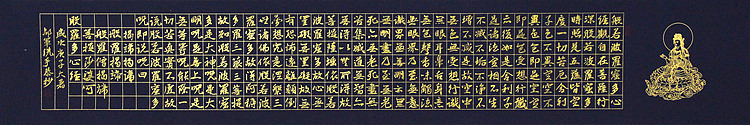 般若波羅蜜多心
經觀自在菩薩行
深般若波羅蜜多
時照見五蘊皆空
度一切苦厄舍利
子色不異空空不
異色色即是空空
即是色受想行識
亦復如是舍利子
是諸法空相不生
不滅不垢不淨不
增不減是故空中
無色無受想行識
無眼耳鼻舌身意
無色聲香味觸法
無眼界乃至無意
識界無無明亦無
無明盡乃至無老
死亦無老死盡無
苦集滅道無智亦
無得以無所得故
菩提薩埵依般若
波羅蜜多故心無
罣礙無罣礙故無
有恐怖遠離顛倒
夢想究竟涅槃三
世諸佛依般若波
羅蜜多故得阿耨
多羅三藐三菩提
故知般若波羅蜜
多是大神呪是大
明呪是無上呪是
無等等呪能除一
切苦真實不虛故
說般若波羅蜜多
呪即說呪曰
揭諦揭諦
般羅揭諦
般羅僧揭諦
菩提莎婆訶
般羅蜜多心經
歲次庚子大暑
洗手恭抄